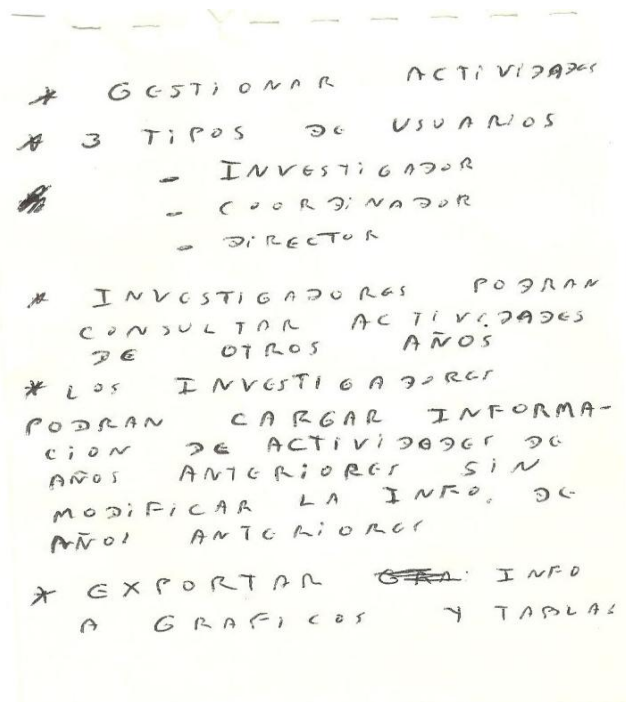 * GESTIONAR ACTIVIDADES
* 3 TIPOS DE USUARIOS
- INVESTIGADOR
- COORDINADOR
- DIRECTOR
* INVESTIGADORES PODRAN
CONSULTAR ACTIVIDADES
DE OTROS AÑOS
* LOS INVESTIGADORES
PODRAN CARGAR INFORMA-
CION DE ACTIVIDADES DE
AÑOS ANTERIORES SIN
MODIFICAR LA INFO. DE
AÑOS ANTERIORES
* EXPORTAR INFO
A GRAFICOS Y TABLAS